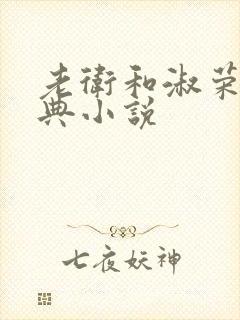 老衛和淑荣
典小説
七夜妖神